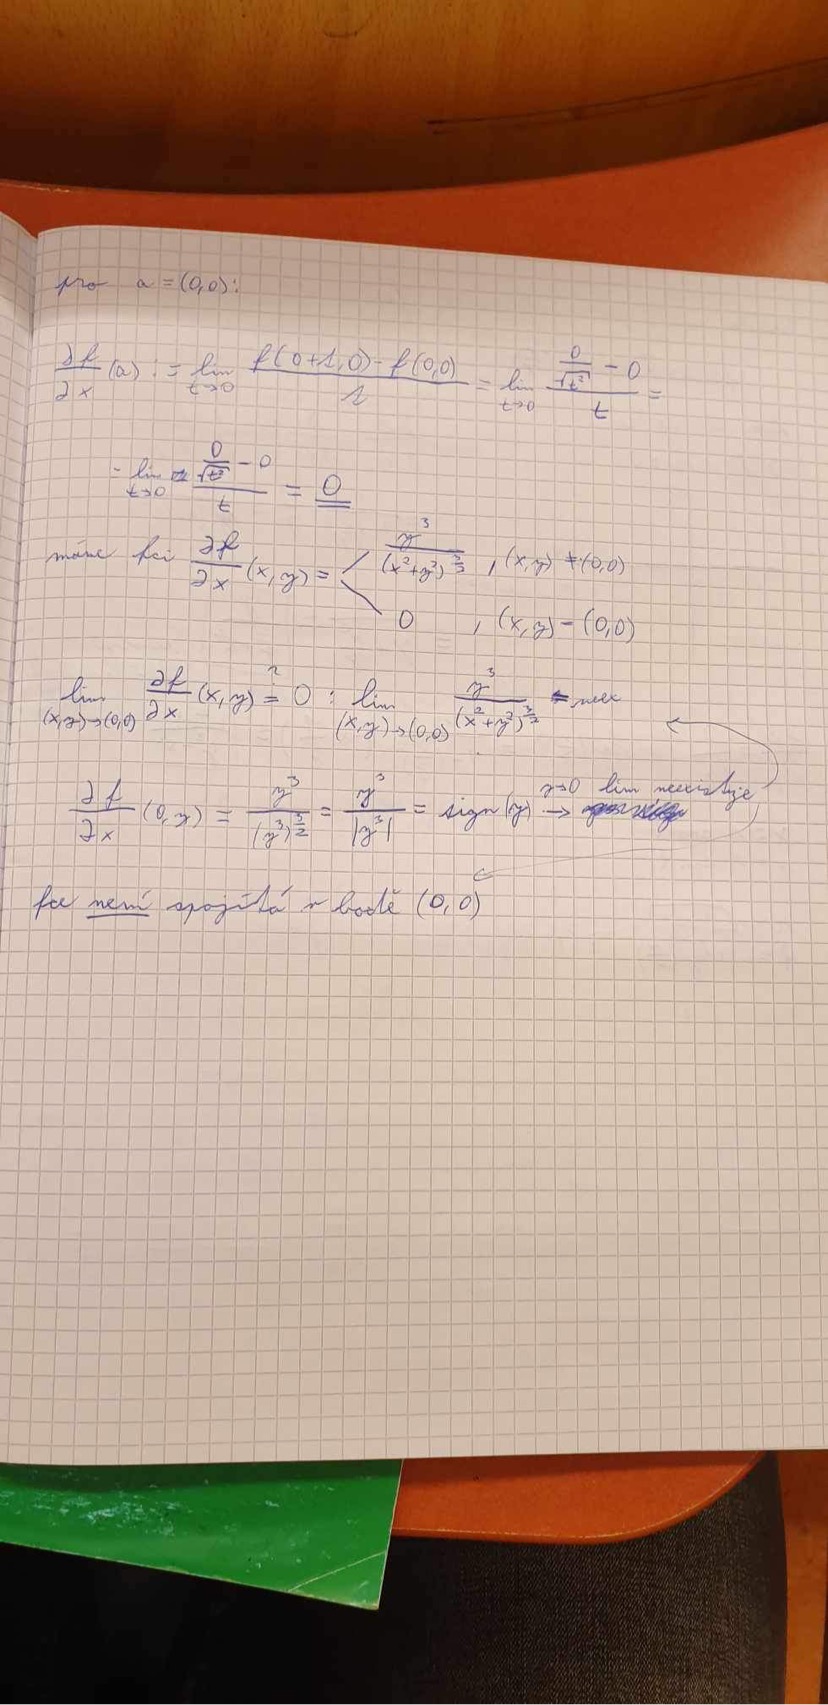 pro a = (0,0):
∂f/∂x (a) := lim_{t→0} (f(0+1,0) - f(0,0))/1 = lim_{t→0} (0/√t² - 0)/t =
= lim_{t→0} (0/√t² - 0)/t = 0
máme fci ∂f/∂x (x,y) = < y³/(x²+y²)^{3/2} , (x,y) ≠ (0,0)
0 , (x,y) = (0,0)
lim_{(x,y)→(0,0)} ∂f/∂x (x,y) =? 0 : lim_{(x,y)→(0,0)} y³/(x²+y²)^{3/2} = neex
∂f/∂x (0,y) = y³/(y²)^{3/2} = y³/|y³| = sign(y) →^{y→0} lim neexistuje
fce není spojitá v bodě (0,0)